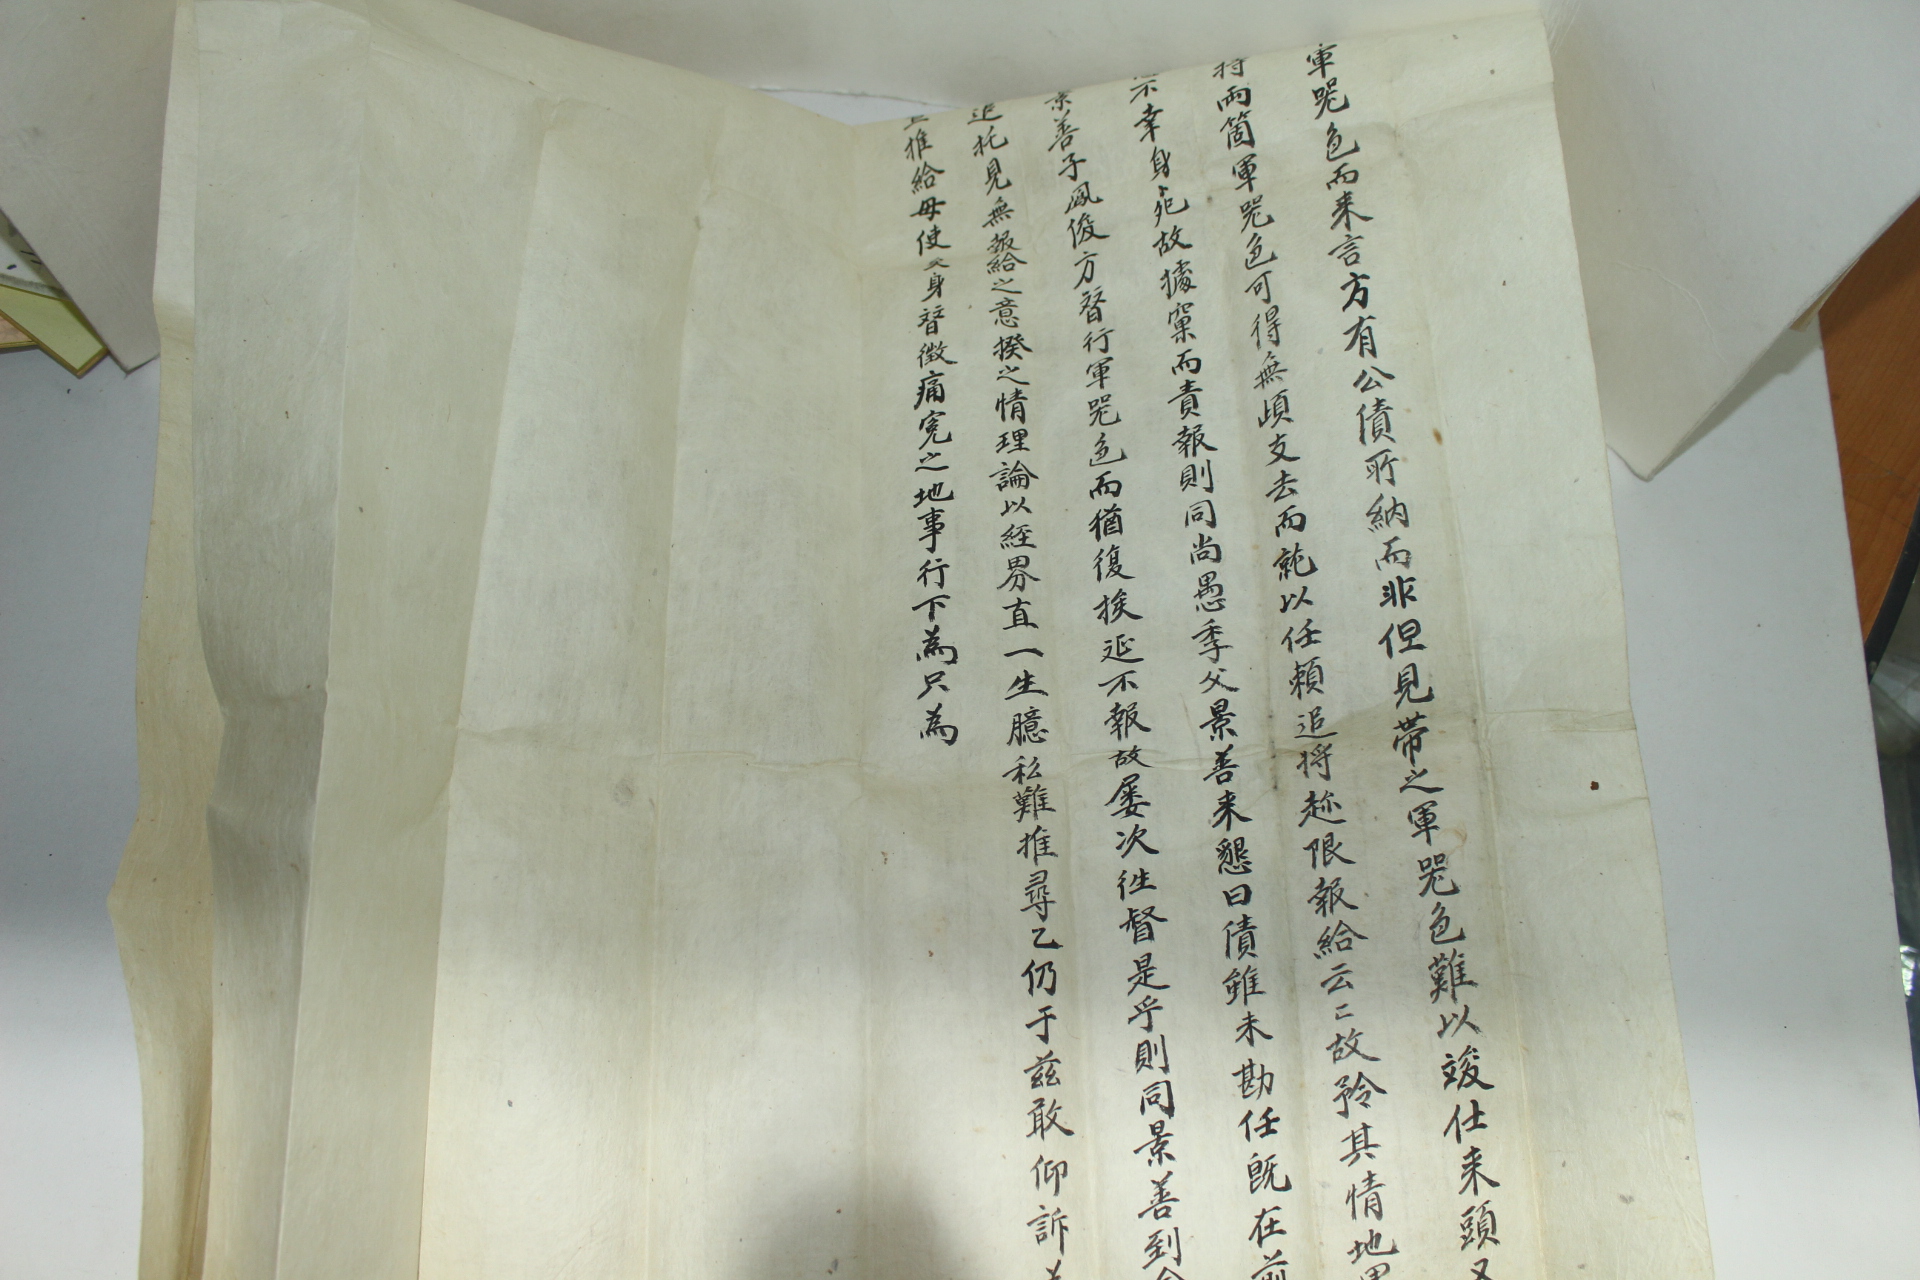 軍器色而来言方有公債所納而非但見帶之軍器色難以竣仕来頭又
将兩箇軍器色可得無頉支去而就以任賴追将趂限報給云〻故矜其情地
不幸身死故據窠而責報則同尚愚季父景善来懇曰債雖未勘任旣在前
景善子鳳俊方督行軍器色而猶復挨延不報故屡次徃督是乎則同景善到
追托見無報給之意揆之情理論以經界直一生臆私難推尋乙仍于玆敢仰訴
上推給毋使矣身督徵痛寃之地事行下為只為